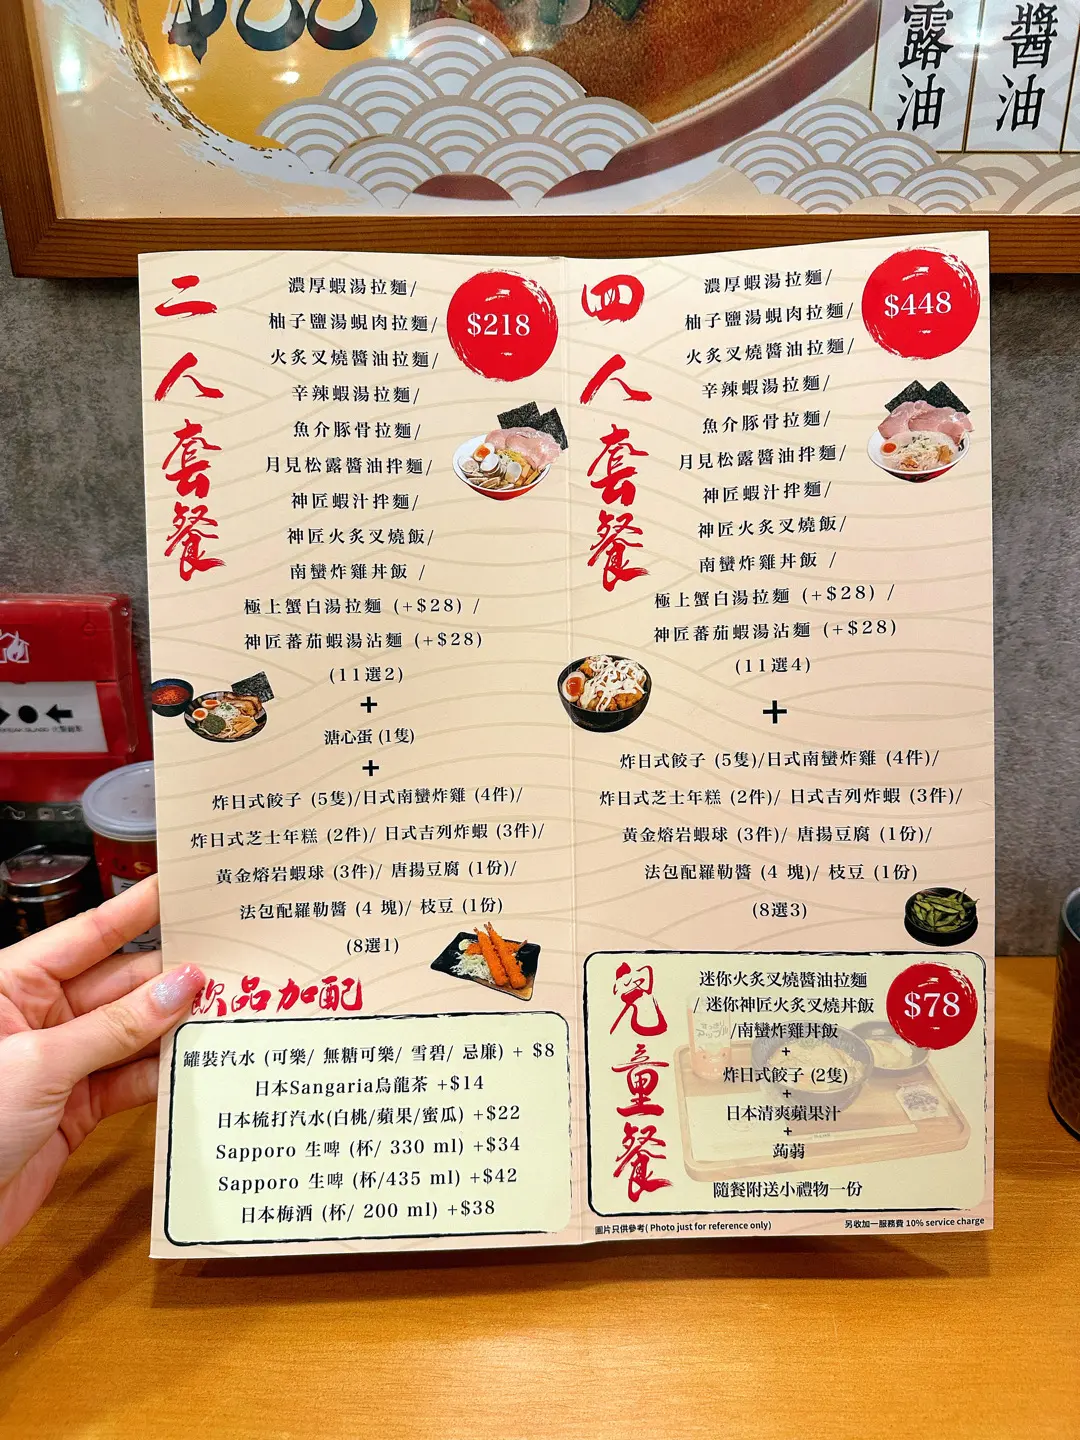 露油
醬油
二人套餐
$218
濃厚蝦湯拉麵/
柚子鹽湯蜆肉拉麵/
火炙叉燒醬油拉麵/
辛辣蝦湯拉麵/
魚介豚骨拉麵/
月見松露醬油拌麵/
神匠蝦汁拌麵/
神匠火炙叉燒飯/
南蠻炸雞丼飯 /
極上蟹白湯拉麵 (+$28) /
神匠蕃茄蝦湯沾麵 (+$28)
(11選2)
+
溏心蛋 (1隻)
+
炸日式餃子 (5隻)/日式南蠻炸雞 (4件)/
炸日式芝士年糕 (2件)/ 日式吉列炸蝦 (3件)/
黃金熔岩蝦球 (3件)/ 唐揚豆腐 (1份)/
法包配羅勒醬 (4 塊)/ 枝豆 (1份)
(8選1)
飲品加配
罐裝汽水 (可樂/ 無糖可樂/ 雪碧/ 忌廉) + $8
日本Sangaria烏龍茶 +$14
日本梳打汽水(白桃/蘋果/蜜瓜) +$22
Sapporo 生啤 (杯/ 330 ml) +$34
Sapporo 生啤 (杯/435 ml) +$42
日本梅酒 (杯/ 200 ml) +$38
四人套餐
$448
濃厚蝦湯拉麵/
柚子鹽湯蜆肉拉麵/
火炙叉燒醬油拉麵/
辛辣蝦湯拉麵/
魚介豚骨拉麵/
月見松露醬油拌麵/
神匠蝦汁拌麵/
神匠火炙叉燒飯/
南蠻炸雞丼飯 /
極上蟹白湯拉麵 (+$28) /
神匠蕃茄蝦湯沾麵 (+$28)
(11選4)
+
炸日式餃子 (5隻)/日式南蠻炸雞 (4件)/
炸日式芝士年糕 (2件)/ 日式吉列炸蝦 (3件)/
黃金熔岩蝦球 (3件)/ 唐揚豆腐 (1份)/
法包配羅勒醬 (4 塊)/ 枝豆 (1份)
(8選3)
兒童餐
$78
迷你火炙叉燒醬油拉麵
/ 迷你神匠火炙叉燒丼飯
/南蠻炸雞丼飯
+
炸日式餃子 (2隻)
+
日本清爽蘋果汁
+
蒟蒻
隨餐附送小禮物一份
圖片只供參考( Photo just for reference only)
另收加一服務費 10% service charge